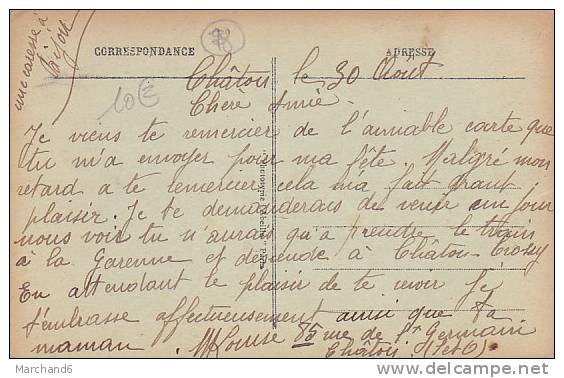 une caresse à
Bijou
CORRESPONDANCE
ADRESSE
10€
Châtou le 30 Août
Chere Amie
Je viens te remercier de l'aimable carte que
tu m'a envoyer pour ma fête. Malgré mon
retard a te remercier cela m'a fait grant
plaisir. Je te demanderais de venir un jour
nous voir tu n'aurais qu'a prendre le train
à la Garenne et désende à Châtou Croissy
En attendant le plaisir de te revoir Je
t'embrasse affectueusement ainsi que ta
maman M Louise 85 rue de St Germain
Châtou (S et O)
Marchand6
delcampe.net